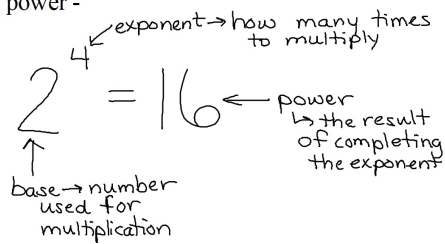 power -
exponent → how many times
to multiply
2⁴ = 16 ← power
↳ the result
of completing
the exponent
base → number
used for
multiplication